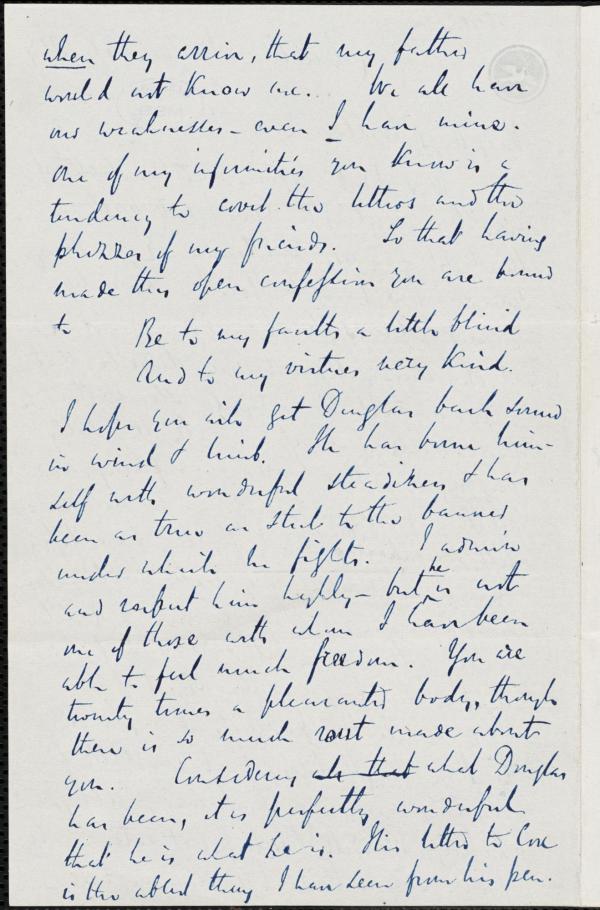 when they arrive, that my father
would not know me. We all have
our weaknesses – even I have mine.
One of my infirmities you know is a
tendency to covet the letters and the
phizzes of my friends. So that having
made this open confession you are bound
to Be to my faults a little blind
And to my virtues very kind.
I hope you will get Douglas back sound
in wind & limb. He has borne him-
self with wonderful steadiness & has
been as true as steel to the banner
under which he fights. I admire
and respect him highly – but he is not
one of those with whom I have been
able to feel much freedom. You are
twenty times a pleasanter body, though
there is so much made about
you. Considering all that what Douglas
has been, it is perfectly wonderful
that he is what he is. His letter to Coxe
is the ablest thing I have seen from his pen.